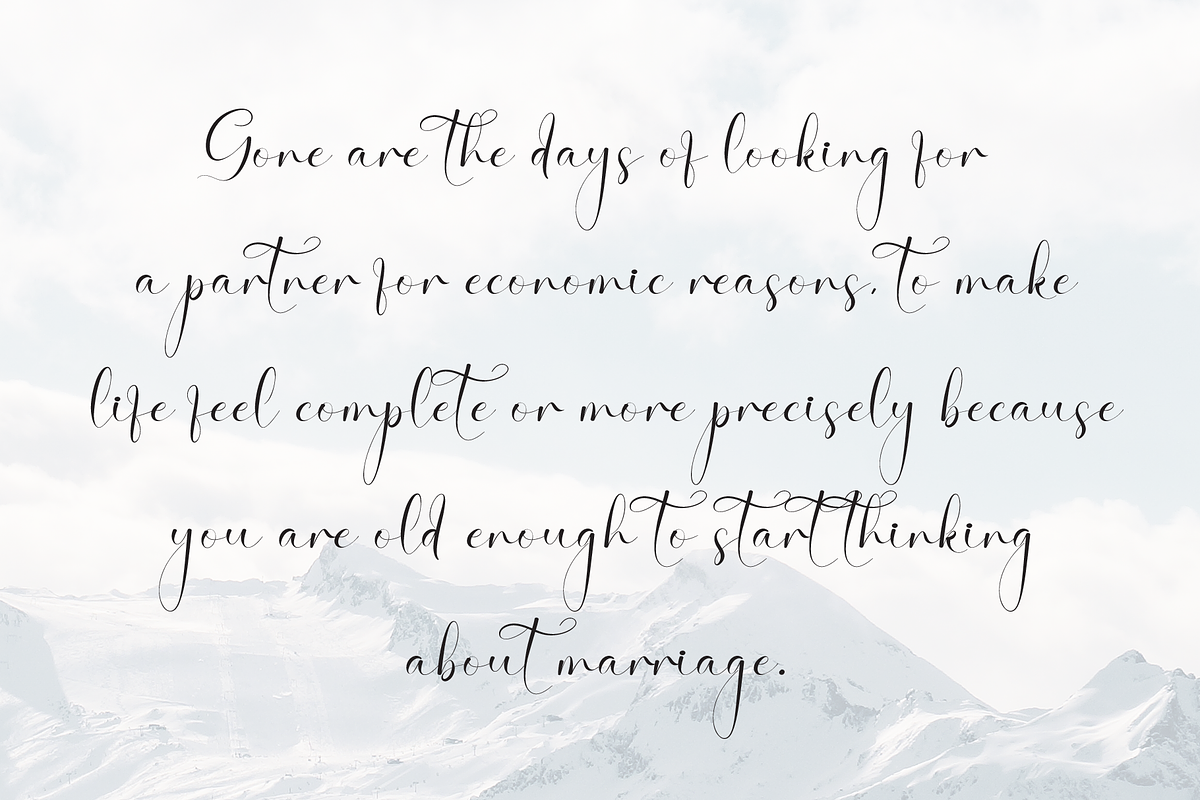 Gone are the days of looking for
a partner for economic reasons, to make
life feel complete or more precisely because
you are old enough to start thinking
about marriage.